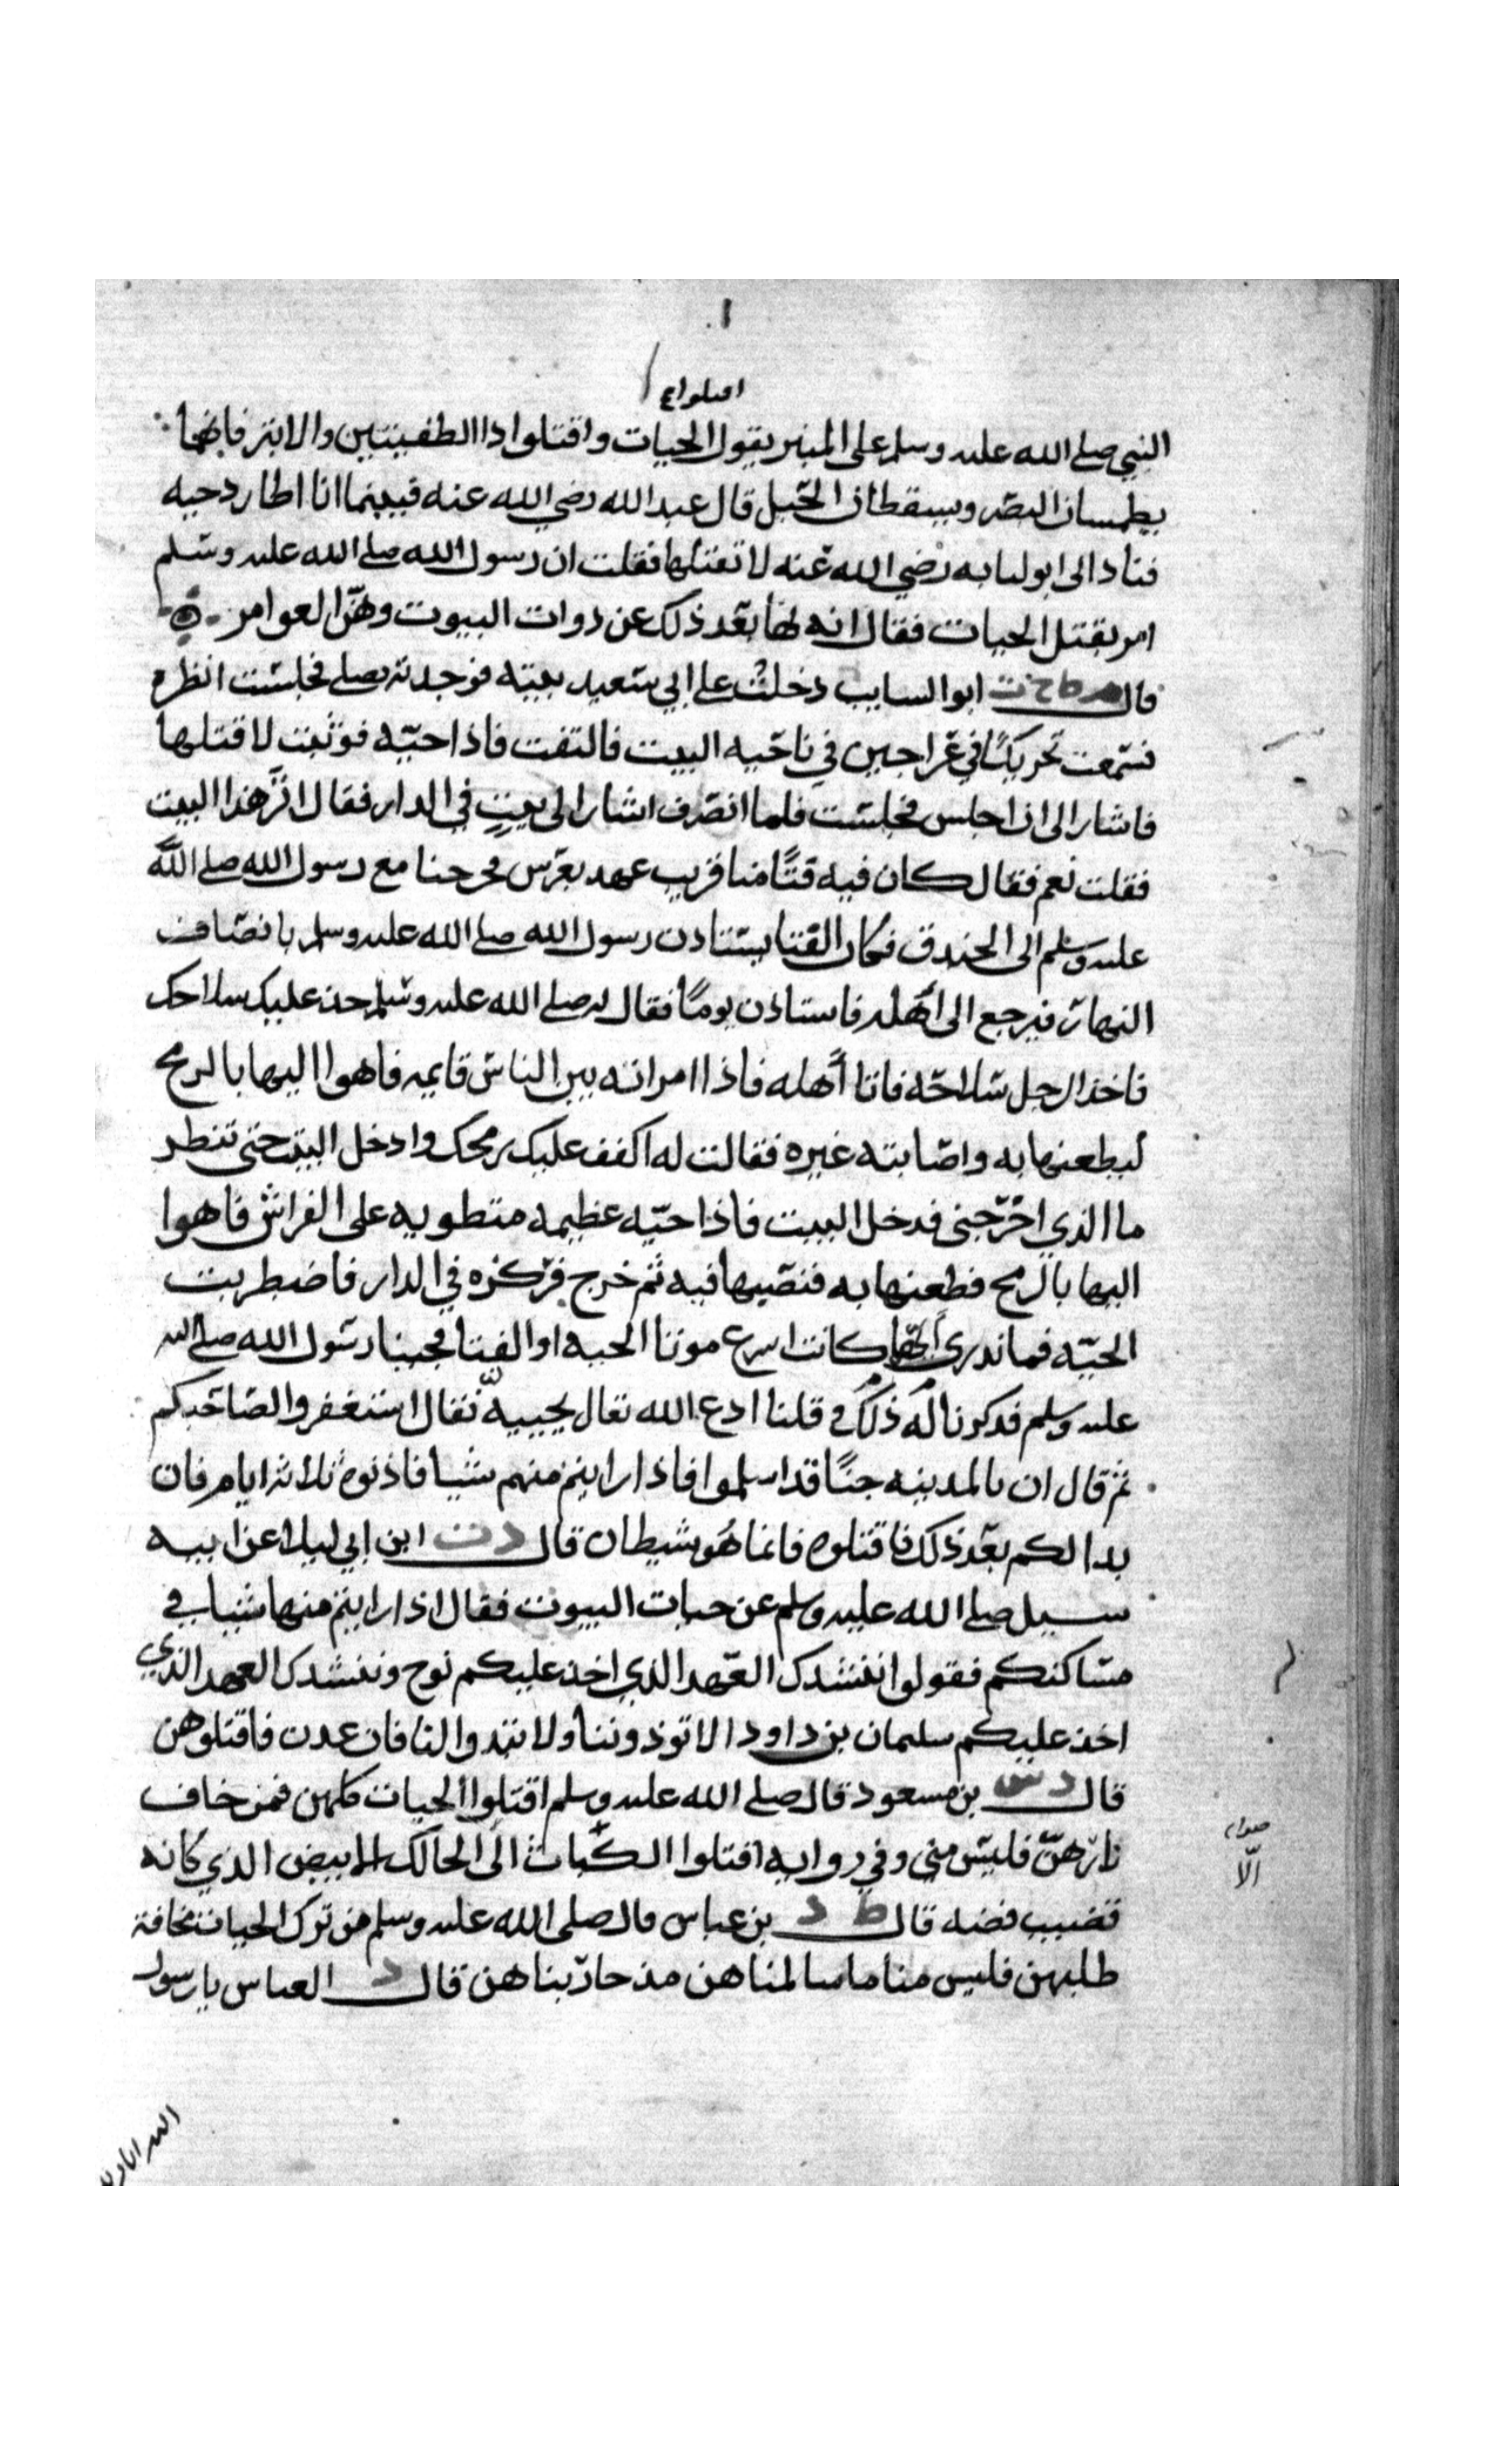 اقتلوا
النبي صلى الله عليه وسلم على المنبر يقول الحيات واقتلوا ذا الطفيتين والابتر فانهما
يطمسان البصر ويسقطان الحبل قال عبد الله رضي الله عنه فبينما انا اطارد حيه
فنادا لى ابو لبابه رضي الله عنه لا تقتلها فقلت ان رسول الله صلى الله عليه وسلم
امر بقتل الحيات فقال انه نها بعد ذلك عن ذوات البيوت وهن العوامر
قال ابو السايب دخلت على ابي سعيد بيته فوجدته يصلي فجلست انظره
فسمعت تحريكا في عراجين في ناحيه البيت فالتفت فاذا حيه فوثبت لاقتلها
فاشار الى ان اجلس فجلست فلما انصرف اشار الى بيت في الدار فقال اتر هذا البيت
فقلت نعم فقال كان فيه فتا منا قريب عهد بعرس فخرجنا مع رسول الله صلى الله
عليه وسلم الى الخندق فكان الفتا يستاذن رسول الله صلى الله عليه وسلم بانصاف
النهار فيرجع الى اهله فاستاذن يوما فقال له صلى الله عليه وسلم خذ عليك سلاحك
فاخذ الرجل سلاحه فاتا اهله فاذا امراته بين الناس قايمه فاهوا اليها بالرمح
ليطعنها به واصابته غيره فقالت له اكفف عليك رمحك وادخل البيت حتى تنظر
ما الذي اخرجني فدخل البيت فاذا حيه عظيمه منطويه على الفراش فاهوا
اليها بالرمح فطعنها به فنصبها فيه ثم خرج فركزه في الدار فاضطربت
الحيه فما ندرى ايهما كانت اسرع موتا الحيه او الفتا فجينا رسول الله صلى الله
عليه وسلم فذكرنا له ذلك وقلنا ادع الله تعال يحييه فقال استغفروا لصاحبكم
ثم قال ان بالمدينه جنا قد اسلموا فاذا رايتم منهم شيا فاذنوه ثلاثه ايام فان
بدا لكم بعد ذلك فاقتلوه فانما هو شيطان قال دت ابن ابي ليلا عن ابيه
سيل صلى الله عليه وسلم عن حيات البيوت فقال اذا رايتم منها شيا في
مساكنكم فقولوا ننشدك العهد الذي اخذ عليكم نوح وننشدك العهد الذي
اخذ عليكم سليمان بن داود الا توذوننا ولا تبدوا لنا فان عدت فاقتلوهن
قال دس بن مسعود قال صلى الله عليه وسلم اقتلوا الحيات كلهن فمن خاف
ثارهن فليس منى وفي روايه اقتلوا الكبات الى الحالك الابيض الذي كانه
صوابه
الا
قضيب فضه قال ط د بن عباس قال صلى الله عليه وسلم من ترك الحيات مخافة
طلبهن فليس منا ما سالمناهن مذ حاربناهن قال د العباس يا رسول